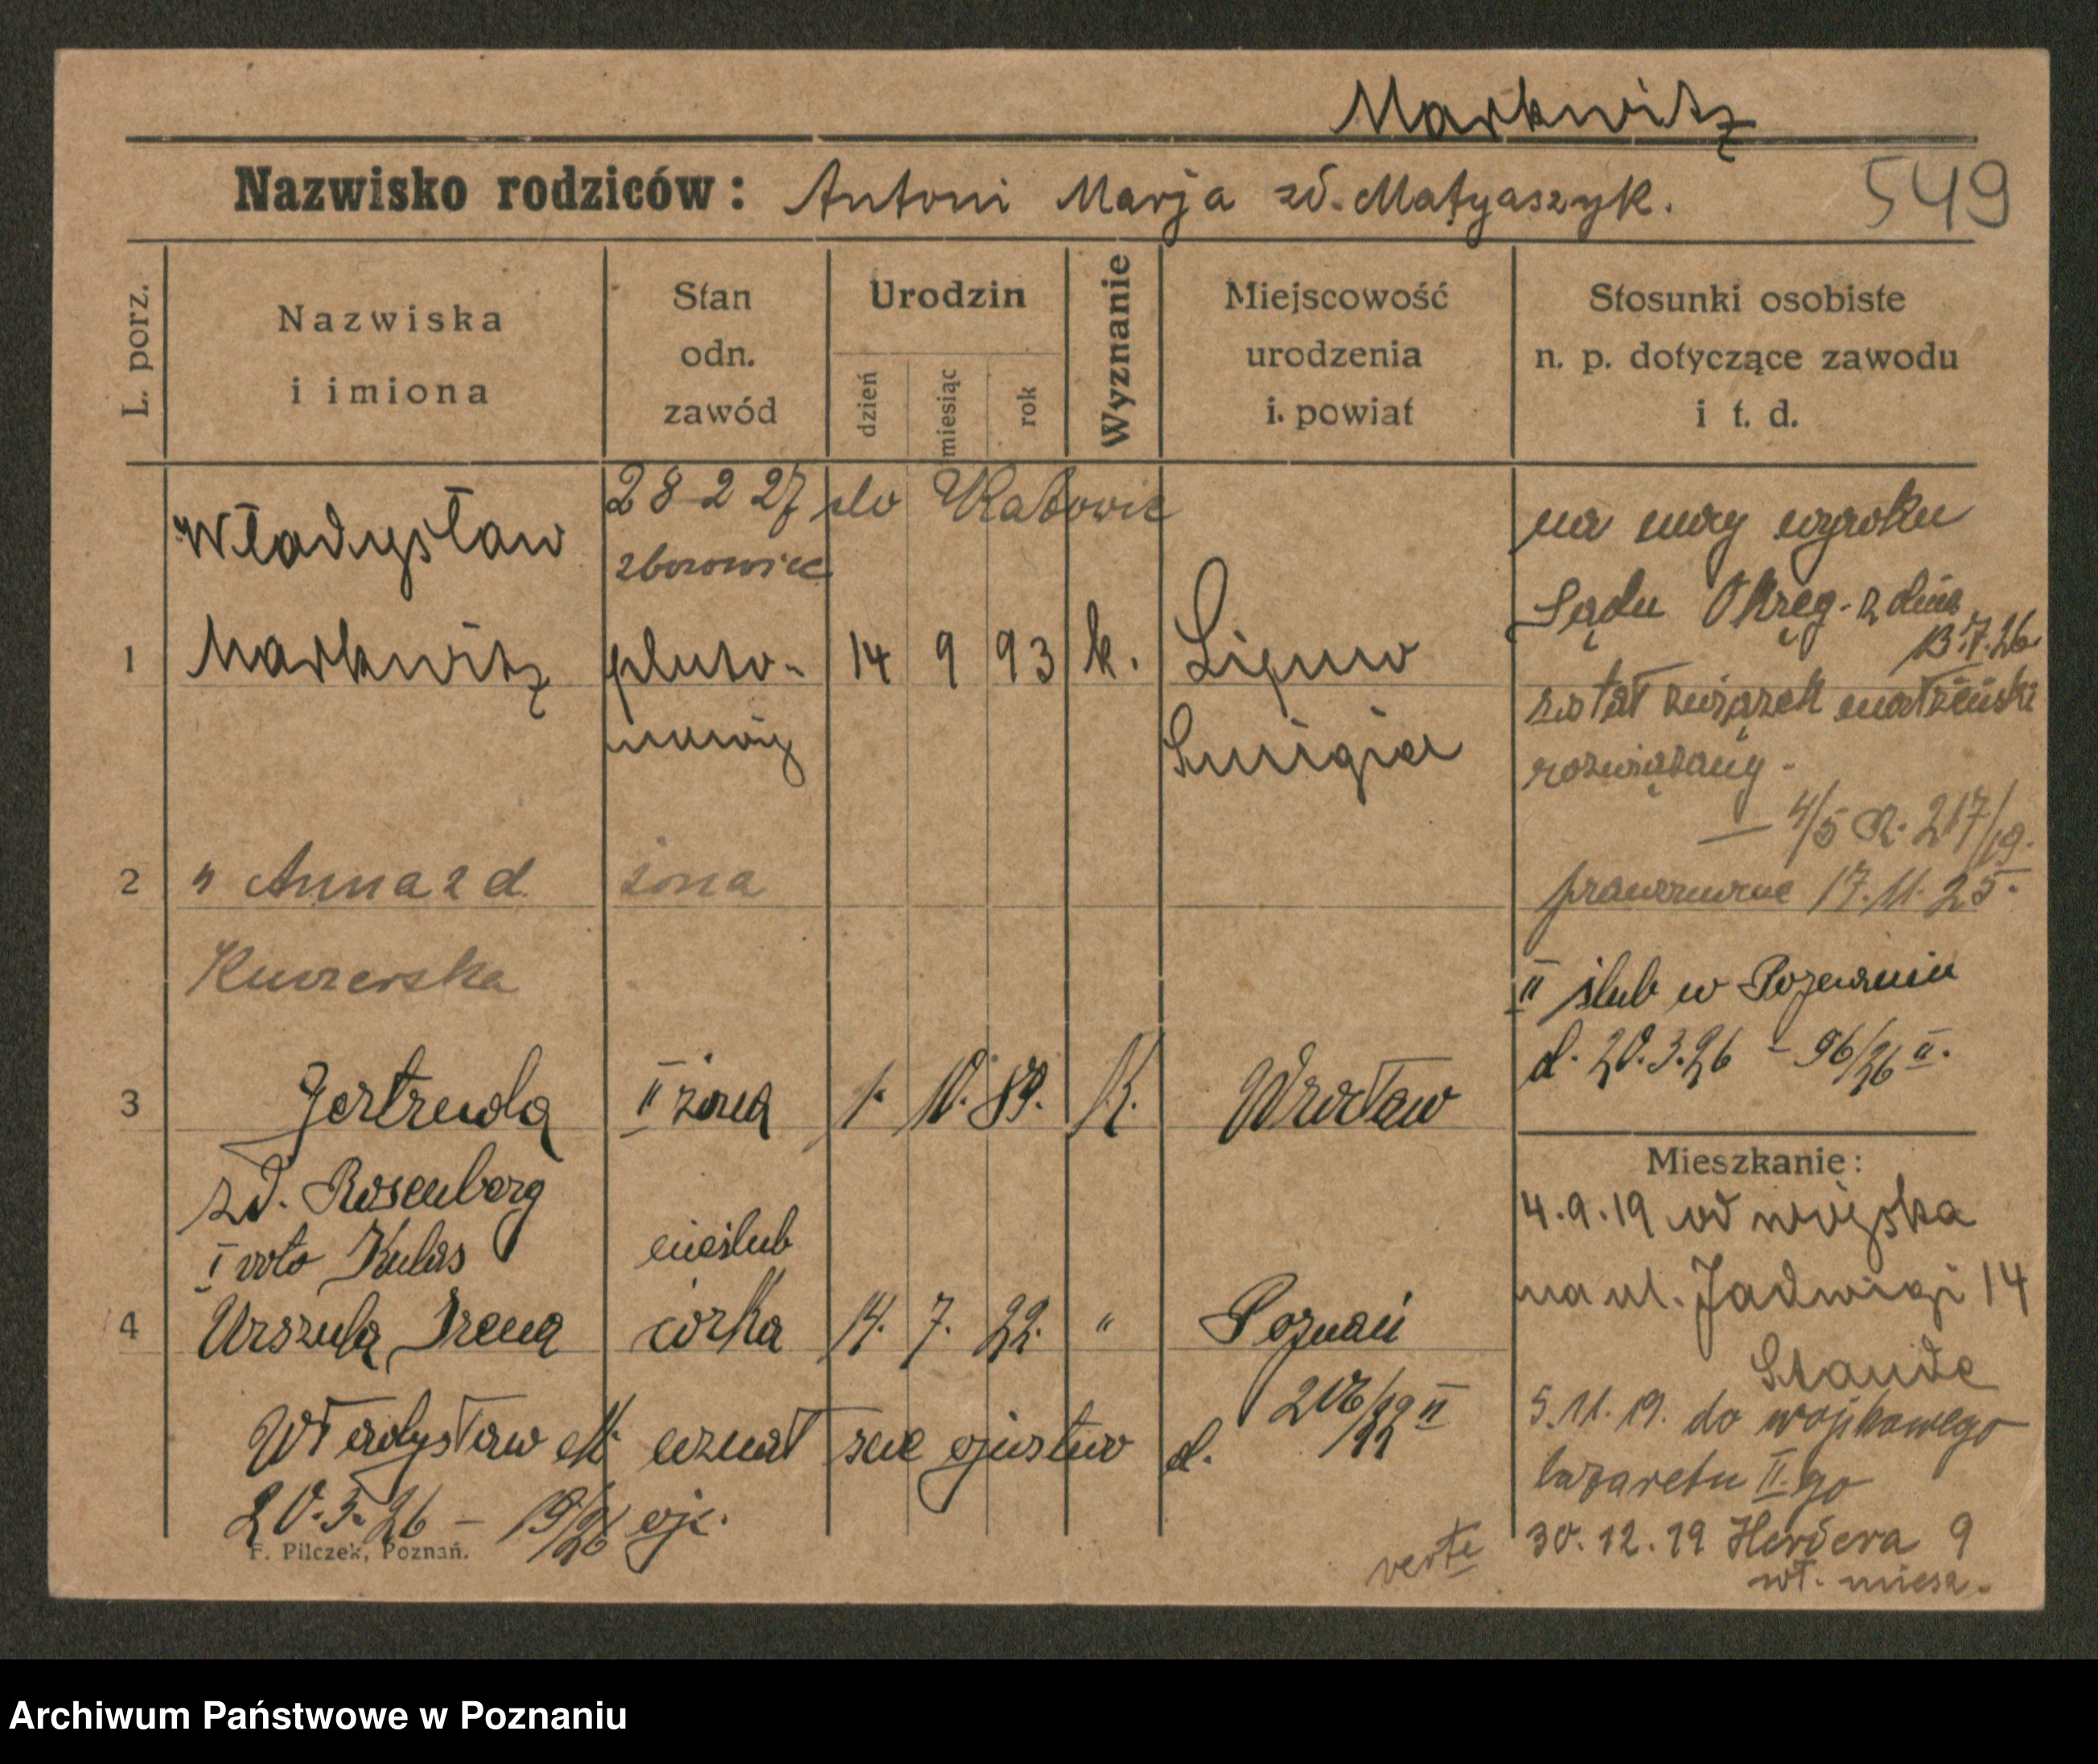 Markwitz
Nazwisko rodziców: Antoni Marja zd. Matyaszyk.
549
L. porz.
Nazwiska
i imiona
Stan
odn.
zawód
Urodzin
dzień
miesiąc
rok
Wyznanie
Miejscowość
urodzenia
i. powiat
Stosunki osobiste
n. p. dotyczące zawodu
i t. d.
28 2 27 do Katowic
Władysław
1 Markwitz pluto- 14 9 93 k.
nowy
Śmigiel
na mocy wyroku
Sądu Okręg. z dnia
13.7.26
został związek małżeński
rozwiązany -
— 4/5 R. 217/19.
prawomocne 17.11.25.
2 " Anna z d. żona
3 Gertruda II żona 1. 10. 89. K. Wrocław
zd. Rosenberg
I voto Kulas
II ślub w Poznaniu
d. 20.3.26 - 96/26 II.
nieślub
4 Urszula Irena córka 14. 7. 22. " Poznań
Władysław M. uznał swe ojcostwo d.
20.5.26 — 19/26 ojc.
F. Pilczek, Poznań.
verte
Mieszkanie:
4.9.19 od wojska
na ul. Jadwigi 14
Staude
5.11.19. do wojskowego
lazaretu II-go
30.12.19 Herdera 9
wł. miesz.
Archiwum Państwowe w Poznaniu